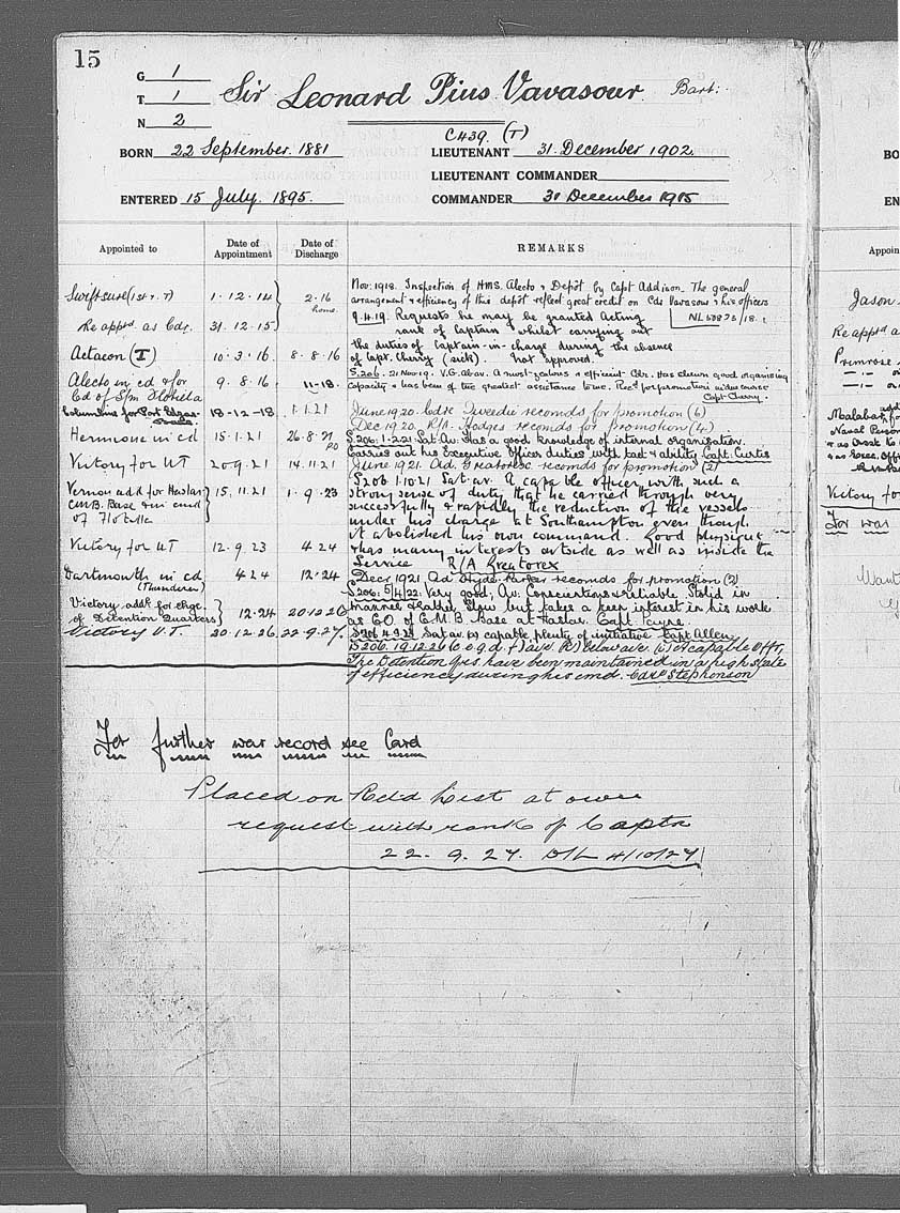 15
G 1
T 1
N 2
Sir Leonard Pius Vavasour Bart:
C439. (T)
BORN 22 September. 1881
LIEUTENANT 31. December 1902.
LIEUTENANT COMMANDER
ENTERED 15 July. 1895.
COMMANDER 31 December 1915
Appointed to
Date of Appointment
Date of Discharge
REMARKS
Swiftsure (1st & T) 1. 12. 14 2. 16 home
Re appted as Cdr. 31. 12. 15
Actaeon (T) 10. 3. 16. 8. 8. 16
Alecto in cd & for 9. 8. 16. 11-18.
Cd of S/m Flotilla
Columbine for Port Edgar 18-12-18. 1.1.21
Hermione in cd 15.1.21 26.8.21
Victory for UT 20.9.21 14.11.21
Vernon addl for Haslar 15.11.21 1.9.23
CMB. Base & in cmd
of Flotilla
Victory for UT 12.9.23 4 24
Dartmouth in cd 4 24 12.24
(Thunderer)
Victory addl for chge. 12.24 20.12.26
of Detention Quarters
Victory U.T. 20.12.26. 22.9.27.
Nov: 1918. Inspection of HMS. Alecto & Depôt by Capt Addison. The general
arrangement & efficiency of this depôt reflect great credit on Cdr Vavasour & his officers
9.4.19. Requests he may be granted Acting
rank of Captain whilst carrying out
the duties of Captain-in-charge during the absence
of Capt. Cherry (sick). Not approved.
S.206. 21 Nov. 19. V.G. Abav. A most zealous & efficient Cdr. Has shewn good organising
capacity & has been of the greatest assistance to me. Recd for promotion in due course
Capt Cherry.
June 1920. Cdre Tweedie recomds for promotion (6)
Dec 1920. R/A Hodges recomds for promotion (4)
S.206. 1.2.21 Sat. Av. Has a good knowledge of internal organisation.
Carries out his Executive Officer duties with tact & ability Capt. Curtis
June 1921. Ad. Greatorex recomds for promotion (2)
S206 1.10.21 Sat. av. A capable officer with such a
strong sense of duty that he carried through very
successfully & rapidly the reduction of the vessels
under his charge at Southampton even though
it abolished his own command. Good physique
& has many interests outside as well as inside the
Service R/A Greatorex
Decr 1921 Ad Hyde Parker recomds for promotion (2)
S206. 5/4/22. Very good, Av. Conscientious & reliable. Stolid in
manner & rather slow but takes a keen interest in his work
as C.O. of C.M.B. Base at Haslar. Capt Payne.
Sat. av. capable, plenty of initiative Capt Allen
S206. 19.12.26
The Detention Qrs. have been maintained in a high state
of efficiency during his cmd. Capt Stephenson
For further war record see Card
Placed on Retd List at own
request with rank of Captn
22. 9. 27. D/L 4/10/27
BO
EN
Appoin
Jason
Re apptd a
Primrose
Malabar
Victory fo
For war